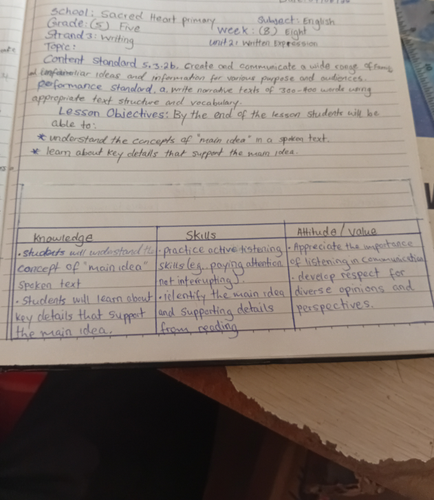 School: Sacred Heart primary Subject: English
Grade: (5) Five Week: (8) Eight
Strand 3: Writing Unit 2: Written Expression
Topic:
Content standard 5.3.2b. Create and communicate a wide range of
ideas and information for various purpose and audiences.
performance standard, a. write narrative texts of words using
appropriate text structure and vocabulary.
Lesson Objectives: By the end of the lesson students will be
able to:
* understand the concepts of "main idea" in a spoken text.
* learn about key details that support the main idea.
Knowledge Skills Attitude / Value
• students will understand the
concept of "main idea"
spoken text
• Students will learn about
key details that support
the main idea.
• practice active listening
skills (eg. paying attention
not interrupting).
• identify the main idea
and supporting details
from reading
• Appreciate the importance
of listening in communication
• develop respect for
diverse opinions and
perspectives.